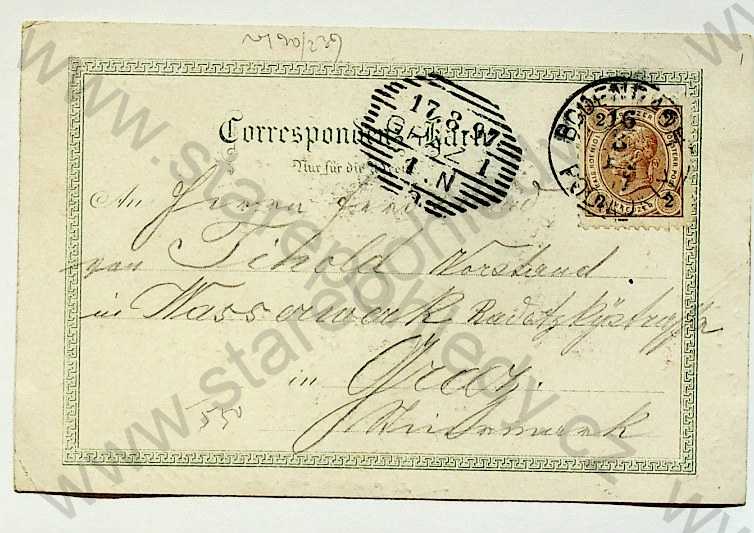 Correspondenz-Karte
Nur für die Adresse
17.8.97
GRAZ
1
1.N
BODENBACH
16
8
97
2
2
An Herrn
von Tihold Vorstand
in Wasserwerk Radetzkystraße
in Graz.
Steiermark
550
www.starepohledy.cz